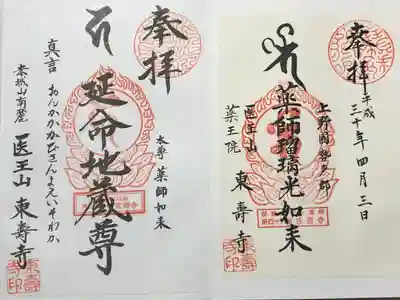 奉拝
本尊 薬師如来
延命地蔵尊
真言 おんかかかびさんまえいそわか
赤城山南麓
医王山 東壽寺
奉拝
平成三十年四月三日
上野國勢多郡
薬師瑠璃光如来
医王山 東壽寺
薬王院